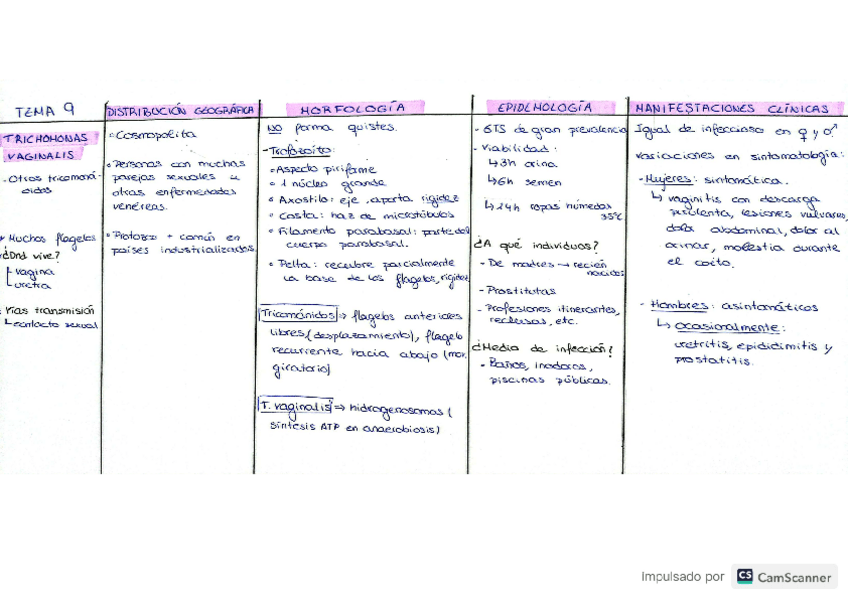 TEMA 9
TRICHOMONAS
VAGINALIS
- Otros tricomoná-
didos
* Muchos flagelos
¿Dnd vive?
vagina
uretra
Vías transmisión
↳ contacto sexual
DISTRIBUCIÓN GEOGRÁFICA
• Cosmopolita
• Personas con muchas
parejas sexuales u
otras enfermedades
venéreas.
• Protozoo + común en
países industrializados.
MORFOLOGÍA
NO forma quistes.
- Trofozoíto:
• Aspecto piriforme
• 1 núcleo grande
• Axostilo: eje, aporta rigidez
• Costa: haz de microtúbulos
• Filamento parabasal: parte del
cuerpo parabasal.
• Pelta: recubre parcialmente
la base de los flagelos, rigidez
Tricomónidos ⇒ flagelos anteriores
libres (desplazamiento), flagelo
recurrente hacia abajo (mov.
giratorio)
T. vaginalis ⇒ hidrogenosomas (
síntesis ATP en anaerobiosis)
EPIDEMOLOGÍA
- ETS de gran prevalencia
- Viabilidad:
↳ 3h orina
↳ 6h semen
↳ 24h ropas húmedas
35ºC
¿A qué individuos?
- De madres → recién
nacidos
- Prostitutas
- Profesiones itinerantes,
reclusas, etc.
¿Media de infección?
- Baños, inodoros,
piscinas públicas.
MANIFESTACIONES CLÍNICAS
Igual de infeccioso en ♀ y ♂
variaciones en sintomatología:
- Mujeres: sintomática.
↳ vaginitis con descarga
purulenta, lesiones vulvares,
dolor abdominal, dolor al
orinar, molestia durante
el coito.
- Hombres: asintomáticos
↳ ocasionalmente:
uretritis, epididimitis y
prostatitis.
Impulsado por CS CamScanner